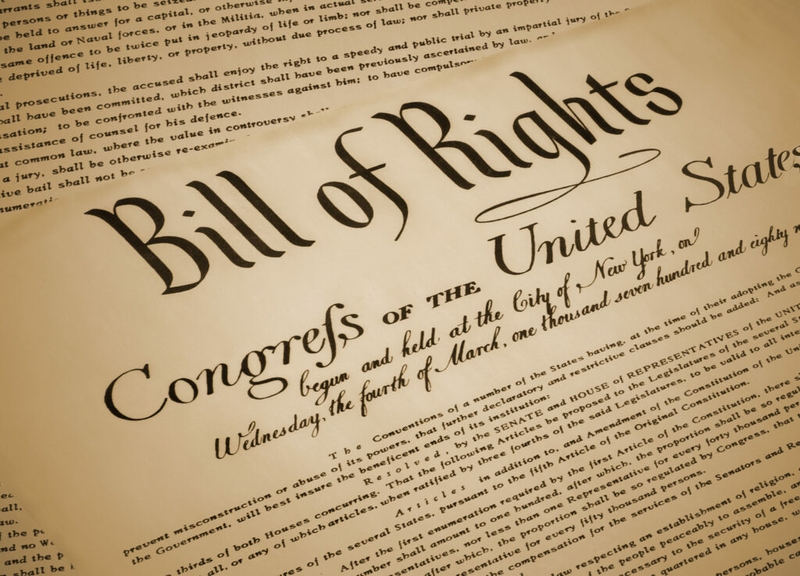 persons or things to be seized
be held to answer for a capital, or otherwise
the land or Naval forces, or in the Militia, when in actual
same offence to be twice put in jeopardy of life or limb; nor shall be
deprived of life, liberty, or property, without due process of law; nor shall private property
prosecutions, the accused shall enjoy the right to a speedy and public trial by an impartial jury of the
have been committed, which district shall have been previously ascertained by law,
to be confronted with the witnesses against him; to have
assistance of counsel for his defence.
at common law, where the value in controversy
a jury, shall be otherwise
bail shall not be
Bill of Rights
Congreſs OF THE United States
begun and held at the City of New York, on
Wednesday, the fourth of March, one thousand seven hundred and eighty
The Conventions of a number of the States having, at the time of their adopting the
prevent misconstruction or abuse of its powers, that further declaratory and restrictive clauses should be added: And
the Government, will best insure the beneficent ends of its institution:
Resolved, by the SENATE and HOUSE of REPRESENTATIVES of the
thirds of both Houses concurring. That the following Articles be proposed to the Legislatures of the several
all, or any of which articles, when ratified by three fourths of the said Legislatures, to be valid to all
Articles in addition to, and Amendment of the Constitution of the
of the several States, pursuant to the fifth Article of the Original Constitution.
After the first enumeration required by the first Article of the Constitution, there
shall amount to one hundred, after which, the proportion shall be so
nor less than one Representative for every forty thousand
after which, the proportion shall be so regulated by Congress, that
for every fifty thousand persons.
the compensation for the services of the Senators and
law respecting an establishment of religion,
the people peaceably to assemble, and
necessary to the security of a
quartered in any house,
persons,